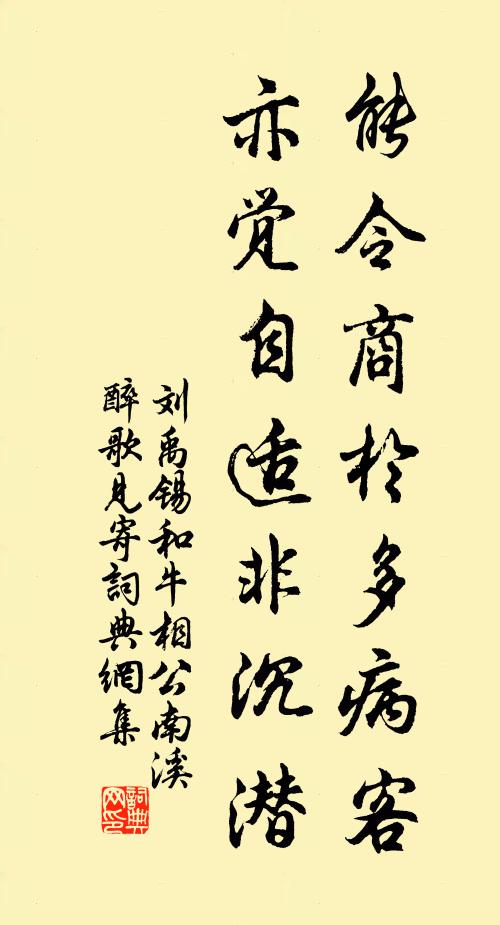 能令商於多病客
亦觉自适非沉潜
刘禹锡和牛相公南溪
醉歌见寄詞典網集
詞典網印